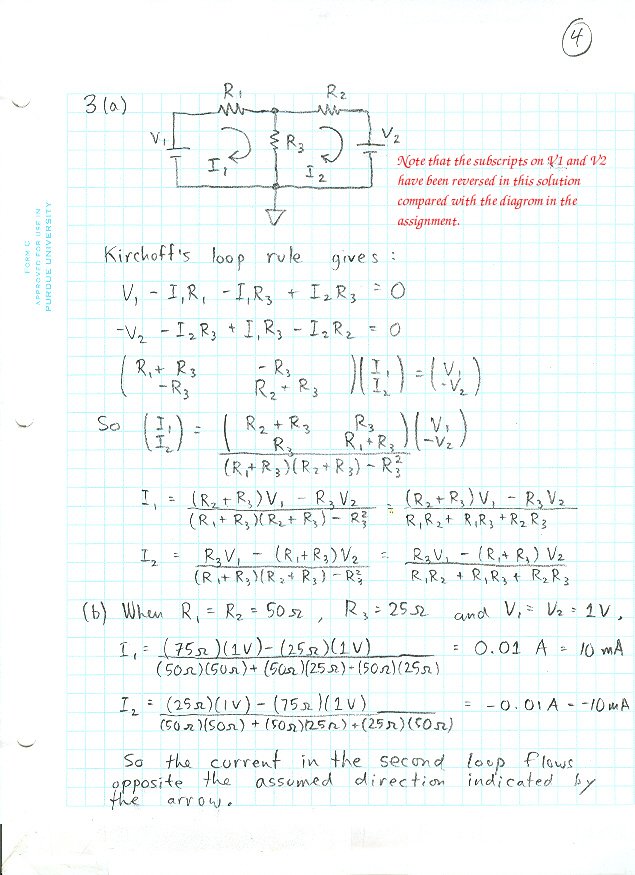 4
3(a)
R₁ R₂
V₁ I₁ R₃ I₂ V₂
Note that the subscripts on V1 and V2
have been reversed in this solution
compared with the diagrom in the
assignment.
FORM C
APPROVED FOR USE IN
PURDUE UNIVERSITY
Kirchoff's loop rule gives:
V₁ - I₁R₁ - I₁R₃ + I₂R₃ = 0
-V₂ - I₂R₃ + I₁R₃ - I₂R₂ = 0
( R₁ + R₃   - R₃ ) ( I₁ ) = ( V₁ )
( - R₃   R₂ + R₃ ) ( I₂ ) ( -V₂ )
So ( I₁ ) = ( R₂ + R₃   R₃ ) ( V₁ )
( I₂ ) ( R₃   R₁ + R₃ ) ( -V₂ )
(R₁ + R₃)(R₂ + R₃) - R₃²
I₁ = (R₂ + R₃)V₁ - R₃V₂ = (R₂ + R₃)V₁ - R₃V₂
(R₁ + R₃)(R₂ + R₃) - R₃² R₁R₂ + R₁R₃ + R₂R₃
I₂ = R₃V₁ - (R₁+R₃)V₂ = R₃V₁ - (R₁ + R₃)V₂
(R₁ + R₃)(R₂ + R₃) - R₃² R₁R₂ + R₁R₃ + R₂R₃
(b) When R₁ = R₂ = 50Ω, R₃ = 25Ω and V₁ = V₂ = 1V,
I₁ = (75Ω)(1V) - (25Ω)(1V) = 0.01 A = 10 mA
(50Ω)(50Ω) + (50Ω)(25Ω) + (50Ω)(25Ω)
I₂ = (25Ω)(1V) - (75Ω)(1V) = -0.01A = -10mA
(50Ω)(50Ω) + (50Ω)(25Ω) + (25Ω)(50Ω)
So the current in the second loop flows
opposite the assumed direction indicated by
the arrow.